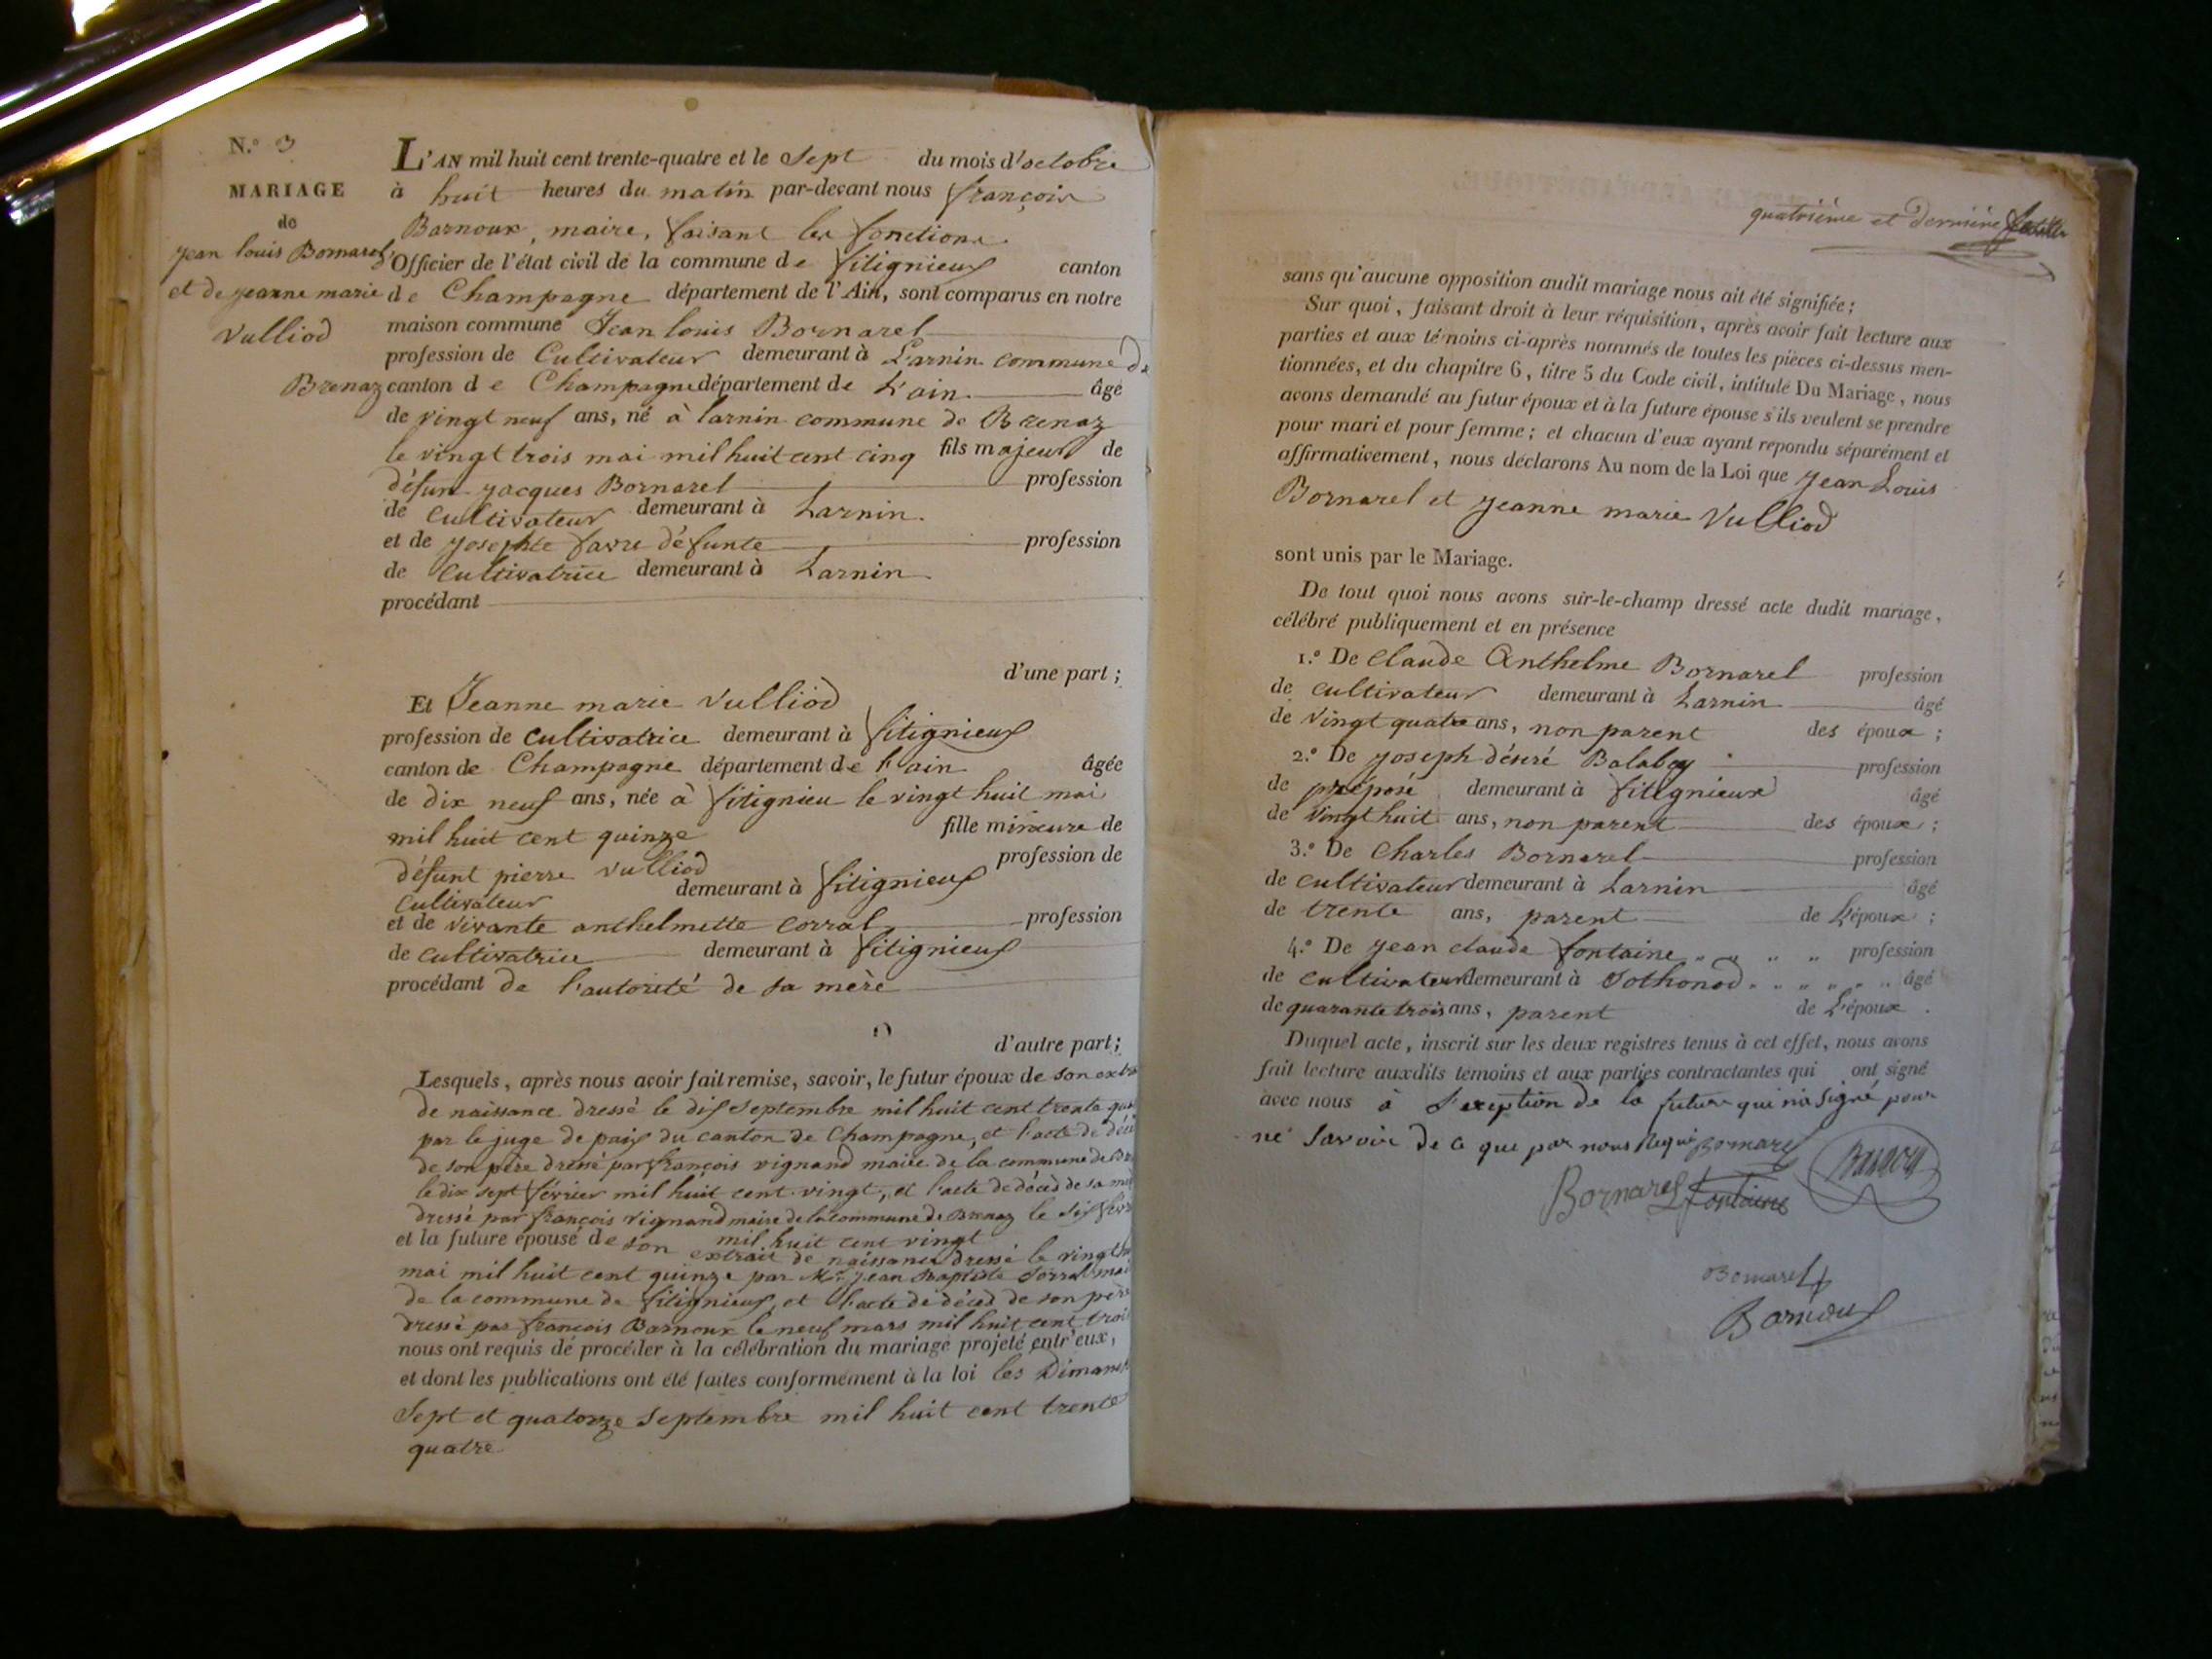 N.° 3
MARIAGE
de
jean louis Bornarel
et de jeanne marie
Vulliod
L'AN mil huit cent trente-quatre et le Sept du mois d'octobre
à huit heures du matin par-devant nous françois
Barnoux, maire, faisant les fonctions
Officier de l'état civil de la commune de fitignieux canton
de Champagne département de l'Ain, sont comparus en notre
maison commune Jean louis Bornarel
profession de Cultivateur demeurant à Larnin commune de
Brenaz canton de Champagne département de L'ain âgé
de vingt neuf ans, né à larnin commune de Brenaz
le vingt trois mai mil huit cent cinq fils majeur de
défunt jacques Bornarel profession
de Cultivateur demeurant à Larnin
et de josephte favre défunte profession
de Cultivatrice demeurant à Larnin
procédant
d'une part ;
Et Jeanne marie Vulliod
profession de Cultivatrice demeurant à fitignieux
canton de Champagne département de l'ain âgée
de dix neuf ans, née à fitignieu le vingt huit mai
mil huit cent quinze fille mineure de
défunt pierre Vulliod profession de
Cultivateur demeurant à fitignieux
et de vivante anthelmette corral profession
de Cultivatrice demeurant à fitignieux
procédant de l'autorité de sa mère
d'autre part ;
Lesquels, après nous avoir fait remise, savoir, le futur époux de son
de naissance dressé le dix Septembre mil huit cent trente
par le juge de paix du canton de Champagne, et l'acte de
de son père dressé par françois vignand maire de la commune de
le dix sept février mil huit cent vingt, et l'acte de décéd de sa
dressé par françois vignand maire de la commune de Brenaz le dix
mil huit cent vingt
et la future épouse de son extrait de naissance dressé le vingt
mai mil huit cent quinze par Mr. jean Baptiste Corral
de la commune de fitignieux, et l'acte de décéd de son père
dressé par françois Barnoux le neuf mars mil huit cent
nous ont requis de procéder à la célébration du mariage projeté entr'eux,
et dont les publications ont été faites conformément à la loi les
Sept et quatorze septembre mil huit cent trente
quatre
quatrième et dernière
sans qu'aucune opposition audit mariage nous ait été signifiée ;
Sur quoi, faisant droit à leur réquisition, après avoir fait lecture aux
parties et aux témoins ci-après nommés de toutes les pièces ci-dessus men-
tionnées, et du chapitre 6, titre 5 du Code civil, intitulé Du Mariage, nous
avons demandé au futur époux et à la future épouse s'ils veulent se prendre
pour mari et pour femme ; et chacun d'eux ayant repondu séparément et
affirmativement, nous déclarons Au nom de la Loi que Jean Louis
Bornarel et jeanne marie Vulliod
sont unis par le Mariage.
De tout quoi nous avons sur-le-champ dressé acte dudit mariage,
célébré publiquement et en présence
1.° De Claude Anthelme Bornarel profession
de cultivateur demeurant à Larnin âgé
de Vingt quatre ans, non parent des époux ;
2.° De joseph désiré Balabey profession
de préposé demeurant à fitignieux âgé
de Vingt huit ans, non parent des époux ;
3.° De Charles Bornarel profession
de cultivateur demeurant à Larnin âgé
de trente ans, parent de L'époux ;
4.° De jean claude fontaine profession
de cultivateur demeurant à Sothonod âgé
de quarante trois ans, parent de L'époux.
Duquel acte, inscrit sur les deux registres tenus à cet effet, nous avons
fait lecture auxdits témoins et aux parties contractantes qui ont signé
avec nous à l'exeption de la future qui n'a signé pour
ne Savoir de ce que par nous Requi Bornarel
Bornarel fontaine
Bornarel
Barnoux